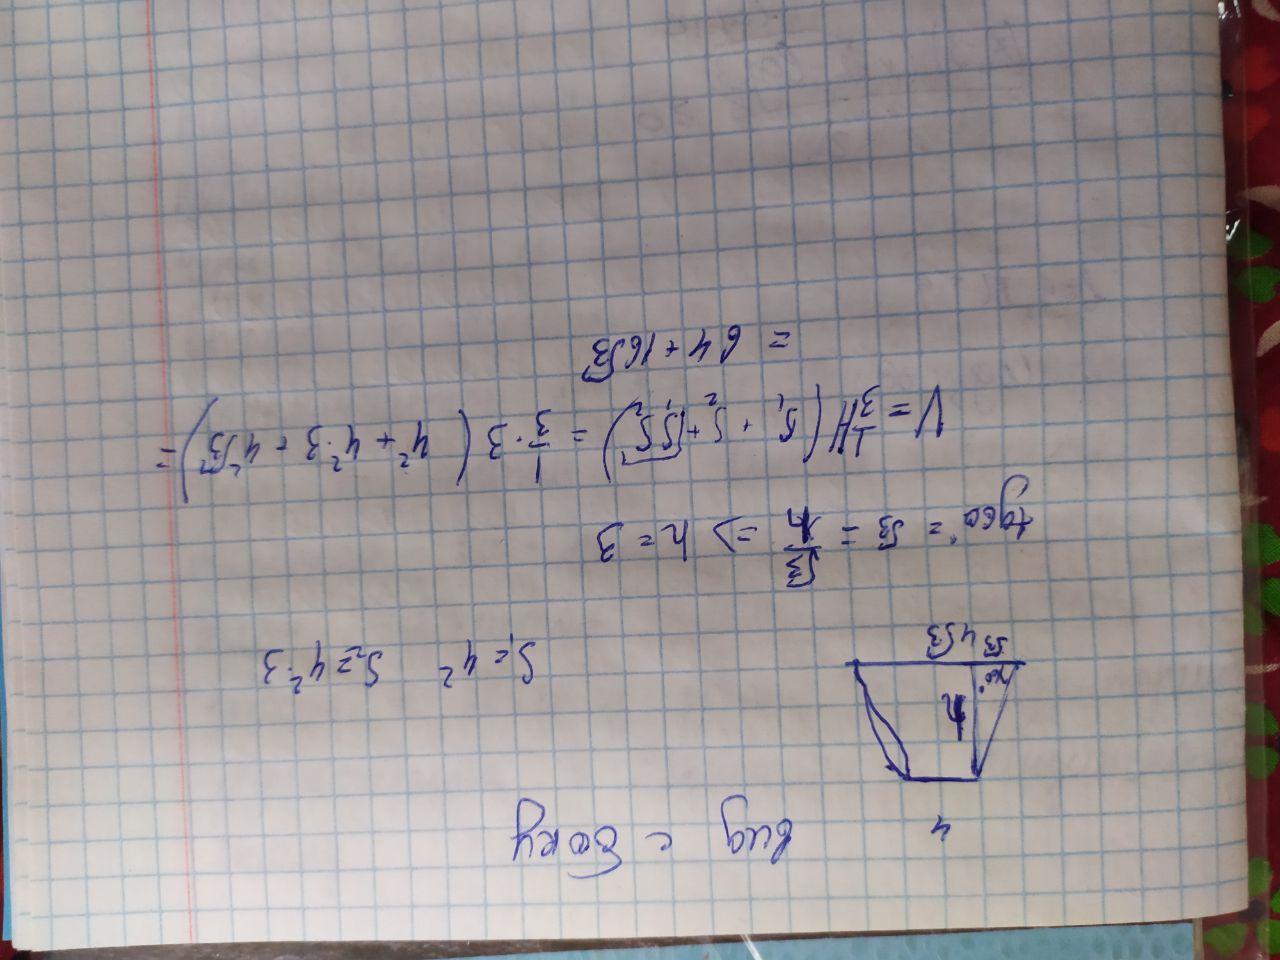 4 вид с боку
h 60°
√3 4√3
S₁ = 4² S₂ = 4²·3
tg60° = √3 = h/√3 => h = 3
V = 1/3 H (S₁ + S₂ + √S₁S₂) = 1/3 · 3 (4² + 4²·3 + 4²√3) =
= 64 + 16√3